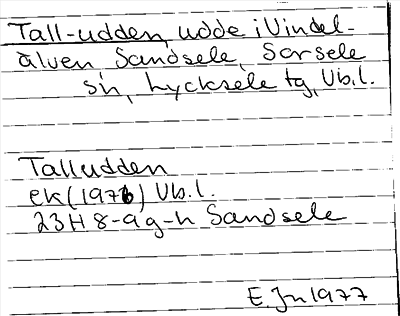 Tall-udden, udde i Vindel-
älven Sandsele, Sorsele
sn, Lycksele tg, Vb.l.
Talludden
ek (1976) Vb.l.
23H 8-9 g-h Sandsele
E.Jn 1977